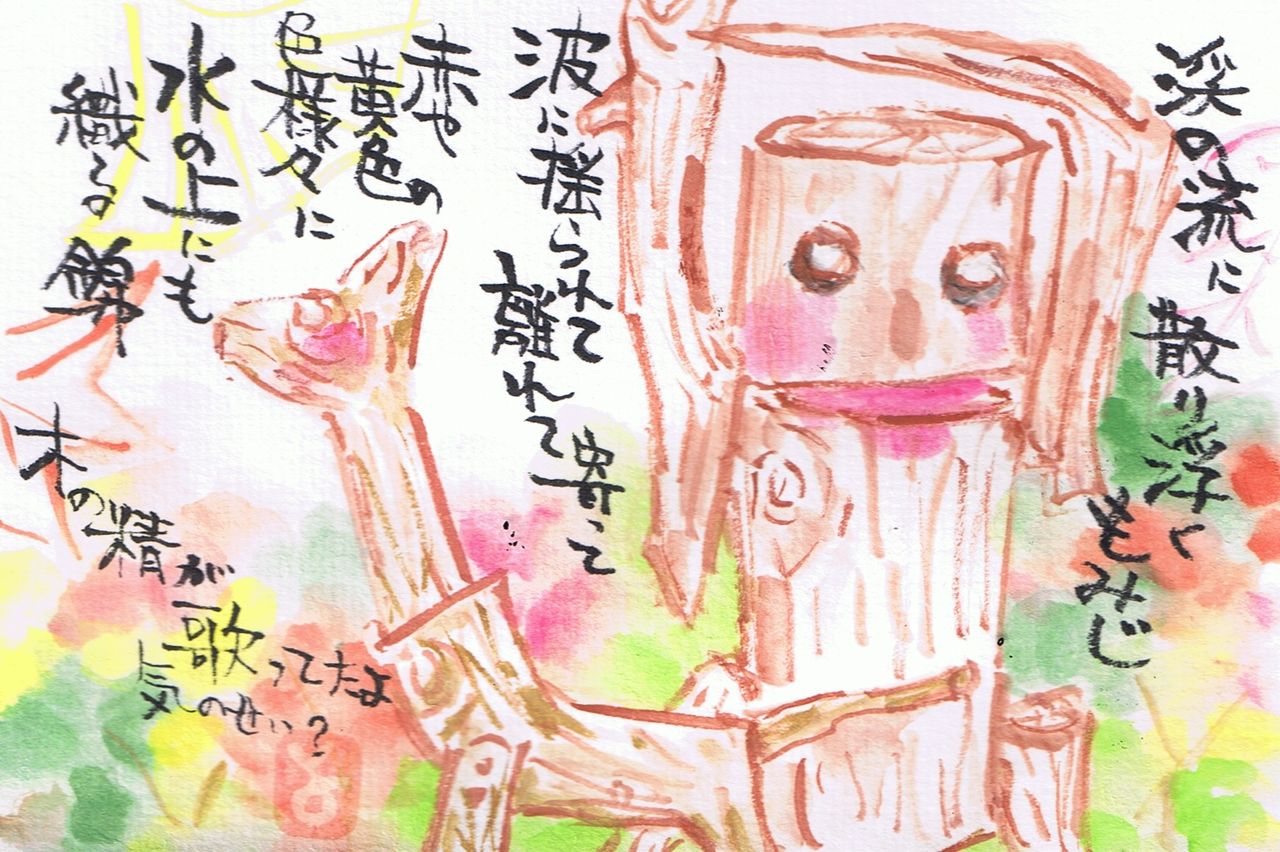 渓の流に散り浮くもみじ
波に揺られて離れて寄って
赤や黄色の
色様々に
水の上にも
織る錦
木の精が歌ってたよ
気のせい?